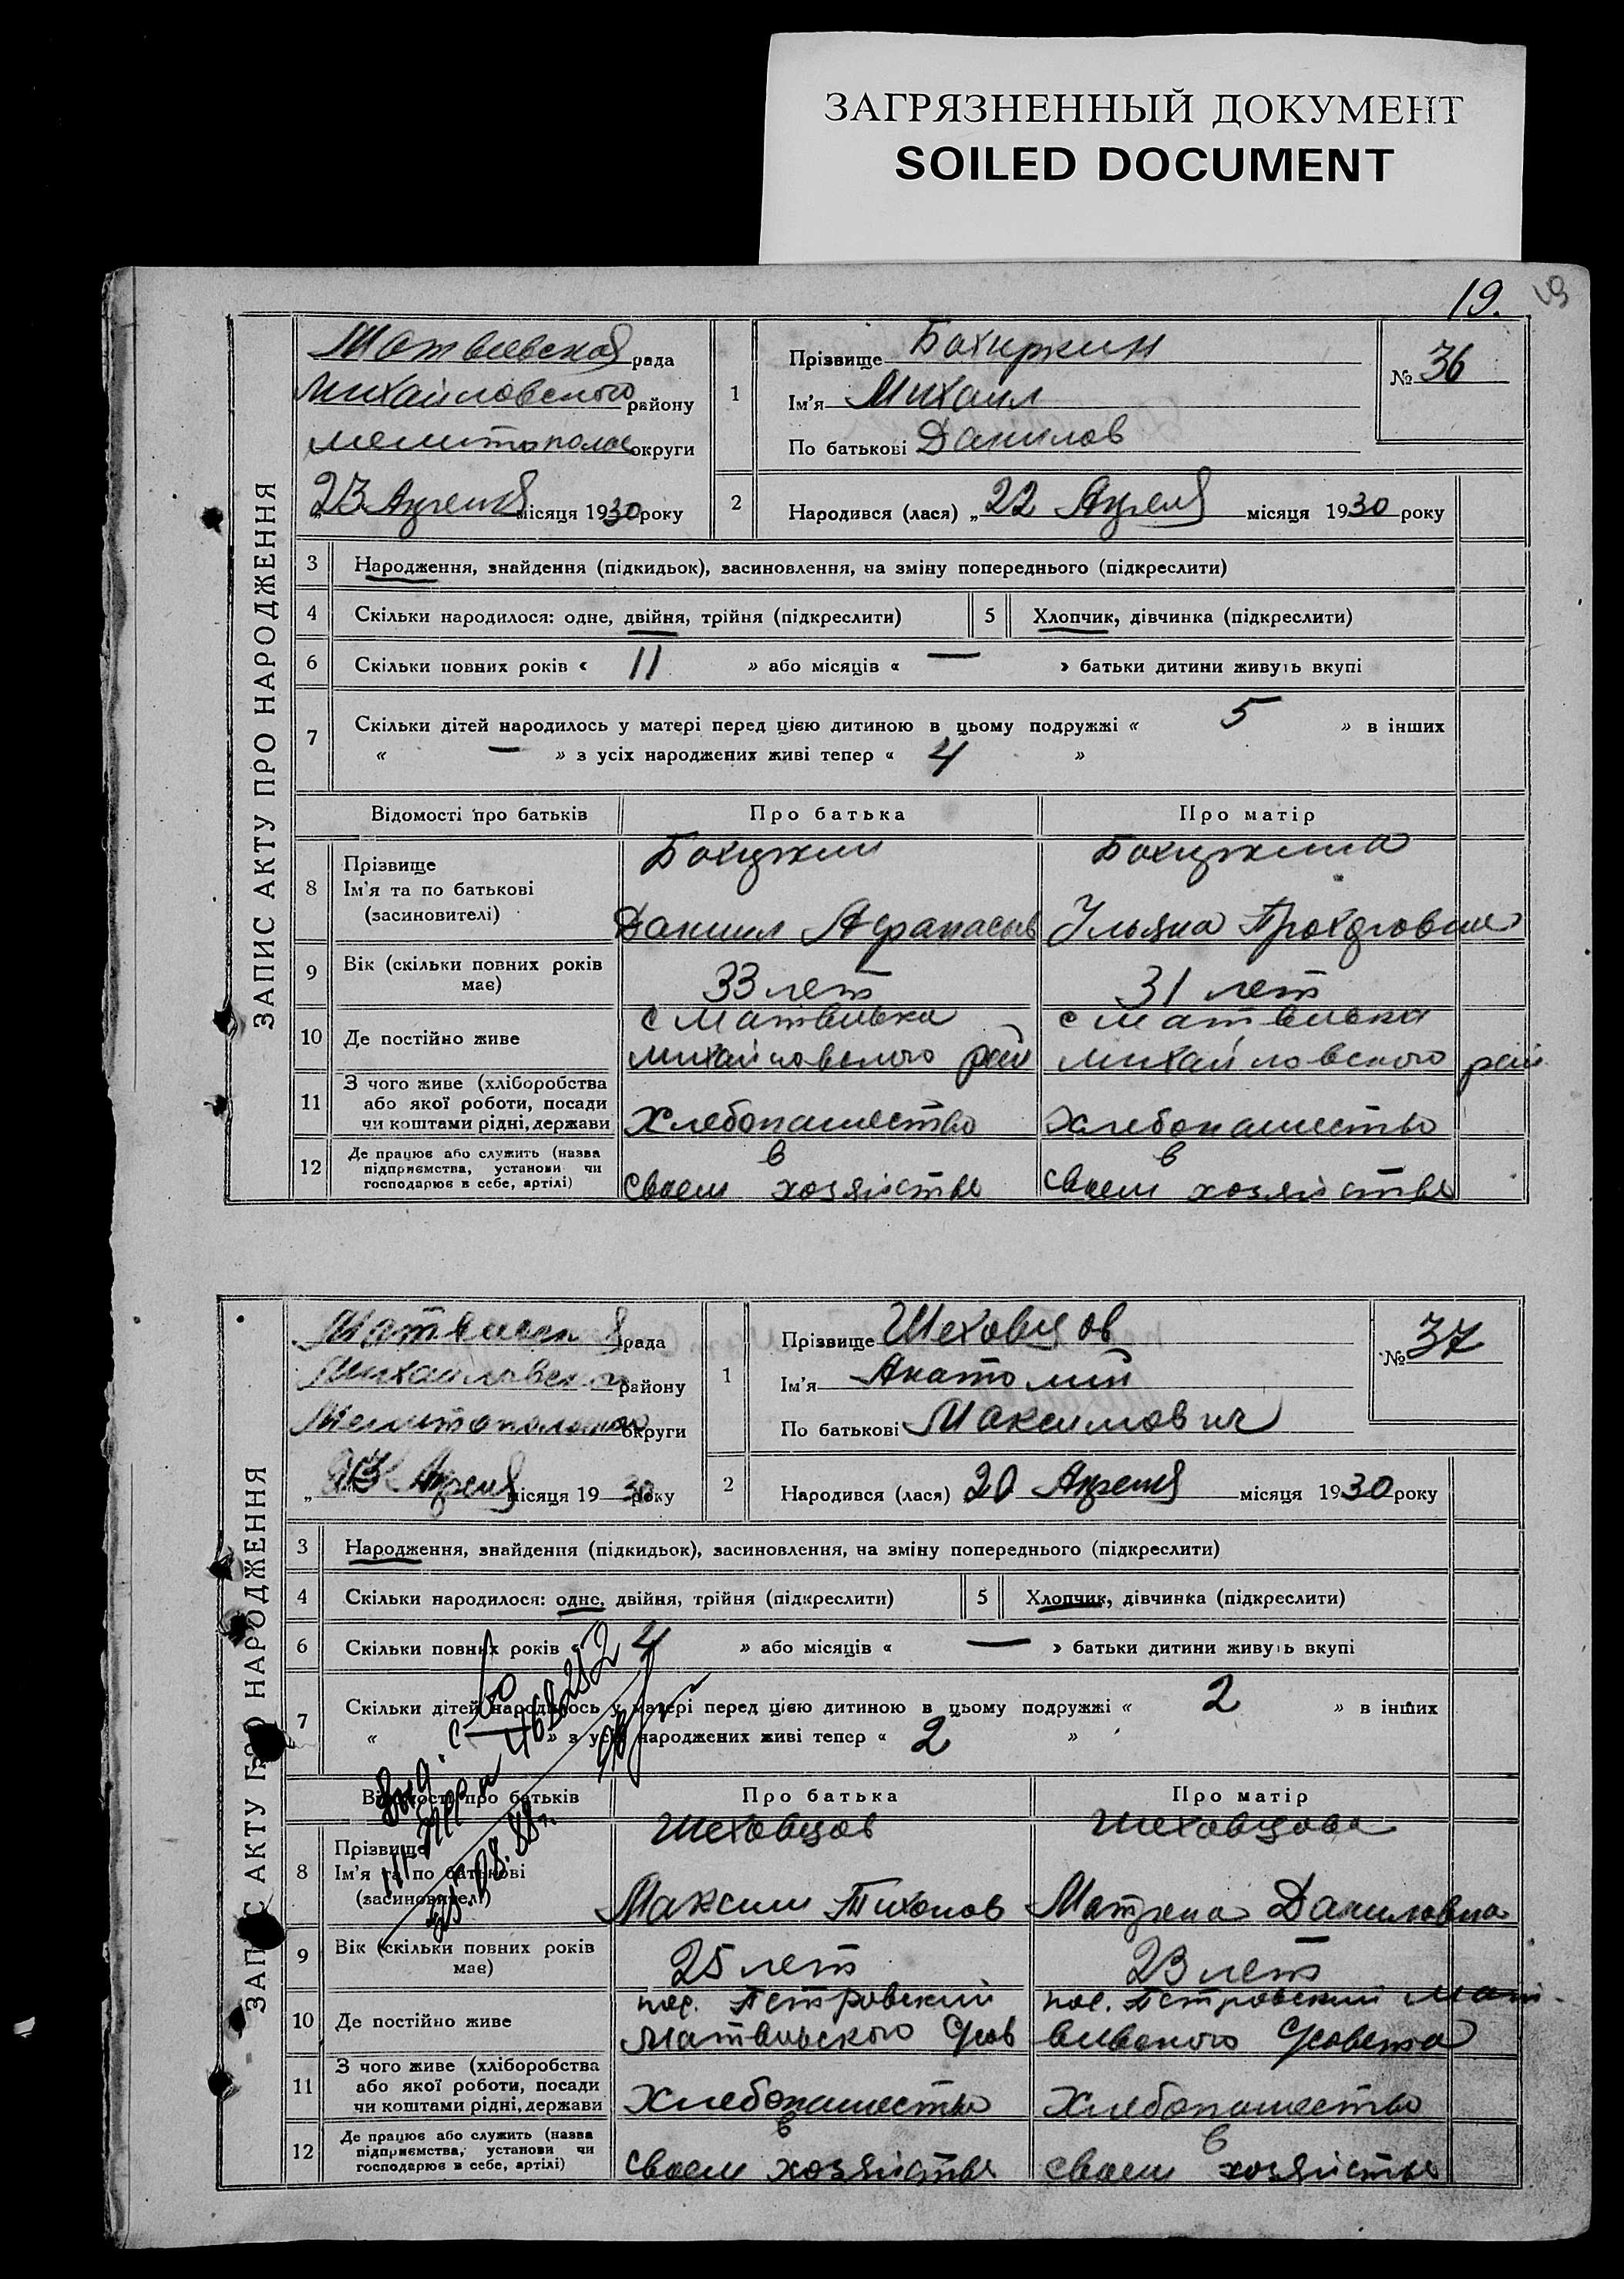 ЗАГРЯЗНЕННЫЙ ДОКУМЕНТ
SOILED DOCUMENT
19.
ЗАПИС АКТУ ПРО НАРОДЖЕННЯ
Матвеевская рада
Михайловского району
Мелитопольс округи
„23 Апреля місяця 1930 року
1
Прізвище Бахиркин
Ім'я Михаил
По батькові Данилов
№ 36
2
Народився (лася) „22 Апреля місяця 1930 року
3 Народження, знайдення (підкидьок), засиновлення, на зміну попереднього (підкреслити)
4 Скільки народилося: одне, двійня, трійня (підкреслити) 5 Хлопчик, дівчинка (підкреслити)
6 Скільки повних років « 11 » або місяців « — » батьки дитини живуть вкупі
7 Скільки дітей народилось у матері перед цією дитиною в цьому подружжі « 5 » в інших
« — » з усіх народжених живі тепер « 4 »
Відомості про батьків Про батька Про матір
8 Прізвище
Ім'я та по батькові
(засиновителі)
Даниил Афанасьев
Ульяна
9 Вік (скільки повних років має) 33 лет 31 лет
10 Де постійно живе
с Матвеевка
Михайловского рай
с Матвеевка
Михайловского рай
11 З чого живе (хліборобства
або якої роботи, посади
чи коштами рідні, держави
Хлебопашество Хлебопашество
12 Де працює або служить (назва
підприємства, установи чи
господарює в себе, артілі)
в своем хозяйстве
в своем хозяйстве
ЗАПИС АКТУ ПРО НАРОДЖЕННЯ
рада
Михайловского району
Мелитопольской округи
„23 Апреля місяця 1930 року
1
Прізвище Шеховцов
Ім'я Анатолий
По батькові Максимович
№ 37
2
Народився (лася) 20 Апреля місяця 1930 року
3 Народження, знайдення (підкидьок), засиновлення, на зміну попереднього (підкреслити)
4 Скільки народилося: одне, двійня, трійня (підкреслити) 5 Хлопчик, дівчинка (підкреслити)
6 Скільки повних років « 4 » або місяців « — » батьки дитини живуть вкупі
7 Скільки дітей народилось у матері перед цією дитиною в цьому подружжі « 2 » в інших
« » з усіх народжених живі тепер « 2 »
Відомості про батьків Про батька Про матір
8 Прізвище
Ім'я та по батькові
(засиновителі)
Шеховцов
Максим Тихонов
Шеховцова
Матрена Даниловна
9 Вік (скільки повних років має) 25 лет 23 лет
10 Де постійно живе
пос. Петровский
Матвеевского
пос. Петровский Мат-
веевского
11 З чого живе (хліборобства
або якої роботи, посади
чи коштами рідні, держави
Хлебопашество Хлебопашество
12 Де працює або служить (назва
підприємства, установи чи
господарює в себе, артілі)
в своем хозяйстве
в своем хозяйстве